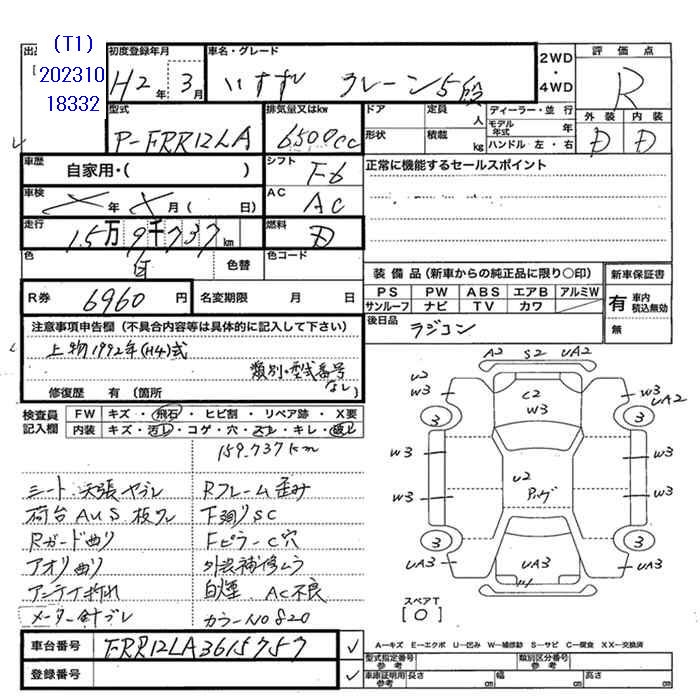 (T1)
202310
18332
初度登録年月
H2年 3月
車名・グレード
いすず クレーン5段
2WD
・
4WD
評価点
R
外装 内装
D D
型式
P-FRR12LA
排気量又はkw
6500cc
ドア
定員 人
形状
積載 kg
ディーラー・並行
モデル年式 年
ハンドル 左・右
車歴
自家用・( )
シフト
F6
正常に機能するセールスポイント
車検
年 月( 日)
AC
AC
走行
15万9千737km
燃料
D
色
白
色替
色コード
R券 6960円
名変期限 月 日
装備品(新車からの純正品に限り○印)
PS PW ABS エアB アルミW
サンルーフ ナビ TV カワ
後日品
ラジコン
新車保証書
有 車内積込無効
無
注意事項申告欄(不具合内容等は具体的に記入して下さい)
上物1992年(H4)式
類別・型式番号なし
修復歴 有(箇所 )
検査員記入欄
FW キズ・飛石・ヒビ割・リペア跡・X要
内装 キズ・汚レ・コゲ・穴・スレ・キレ・破レ
159.737km
シート、天張ヤブレ Rフレーム歪み
荷台AUS 板ワレ 下廻りSC
Rガード曲り FピラーC穴
アオリ曲り 外装補修ムラ
アンテナ折れ 白煙 AC不良
メーター針ブレ カラーNO820
A2 S2 UA2
U2
W3 C2 W3 W3
UA2
3 3
W3 W3
U2
W3 W3
3 3
UA3 UA3 UA3
スペアT
[0]
車台番号 FRR12LA3615757
登録番号
A―キズ E―エクボ U―凹み W―補修跡 S―サビ C―腐食 XX―交換済
型式指定番号 参考
類別区分番号 参考
車庫証明用 参考 長さ cm 幅 cm 高さ cm